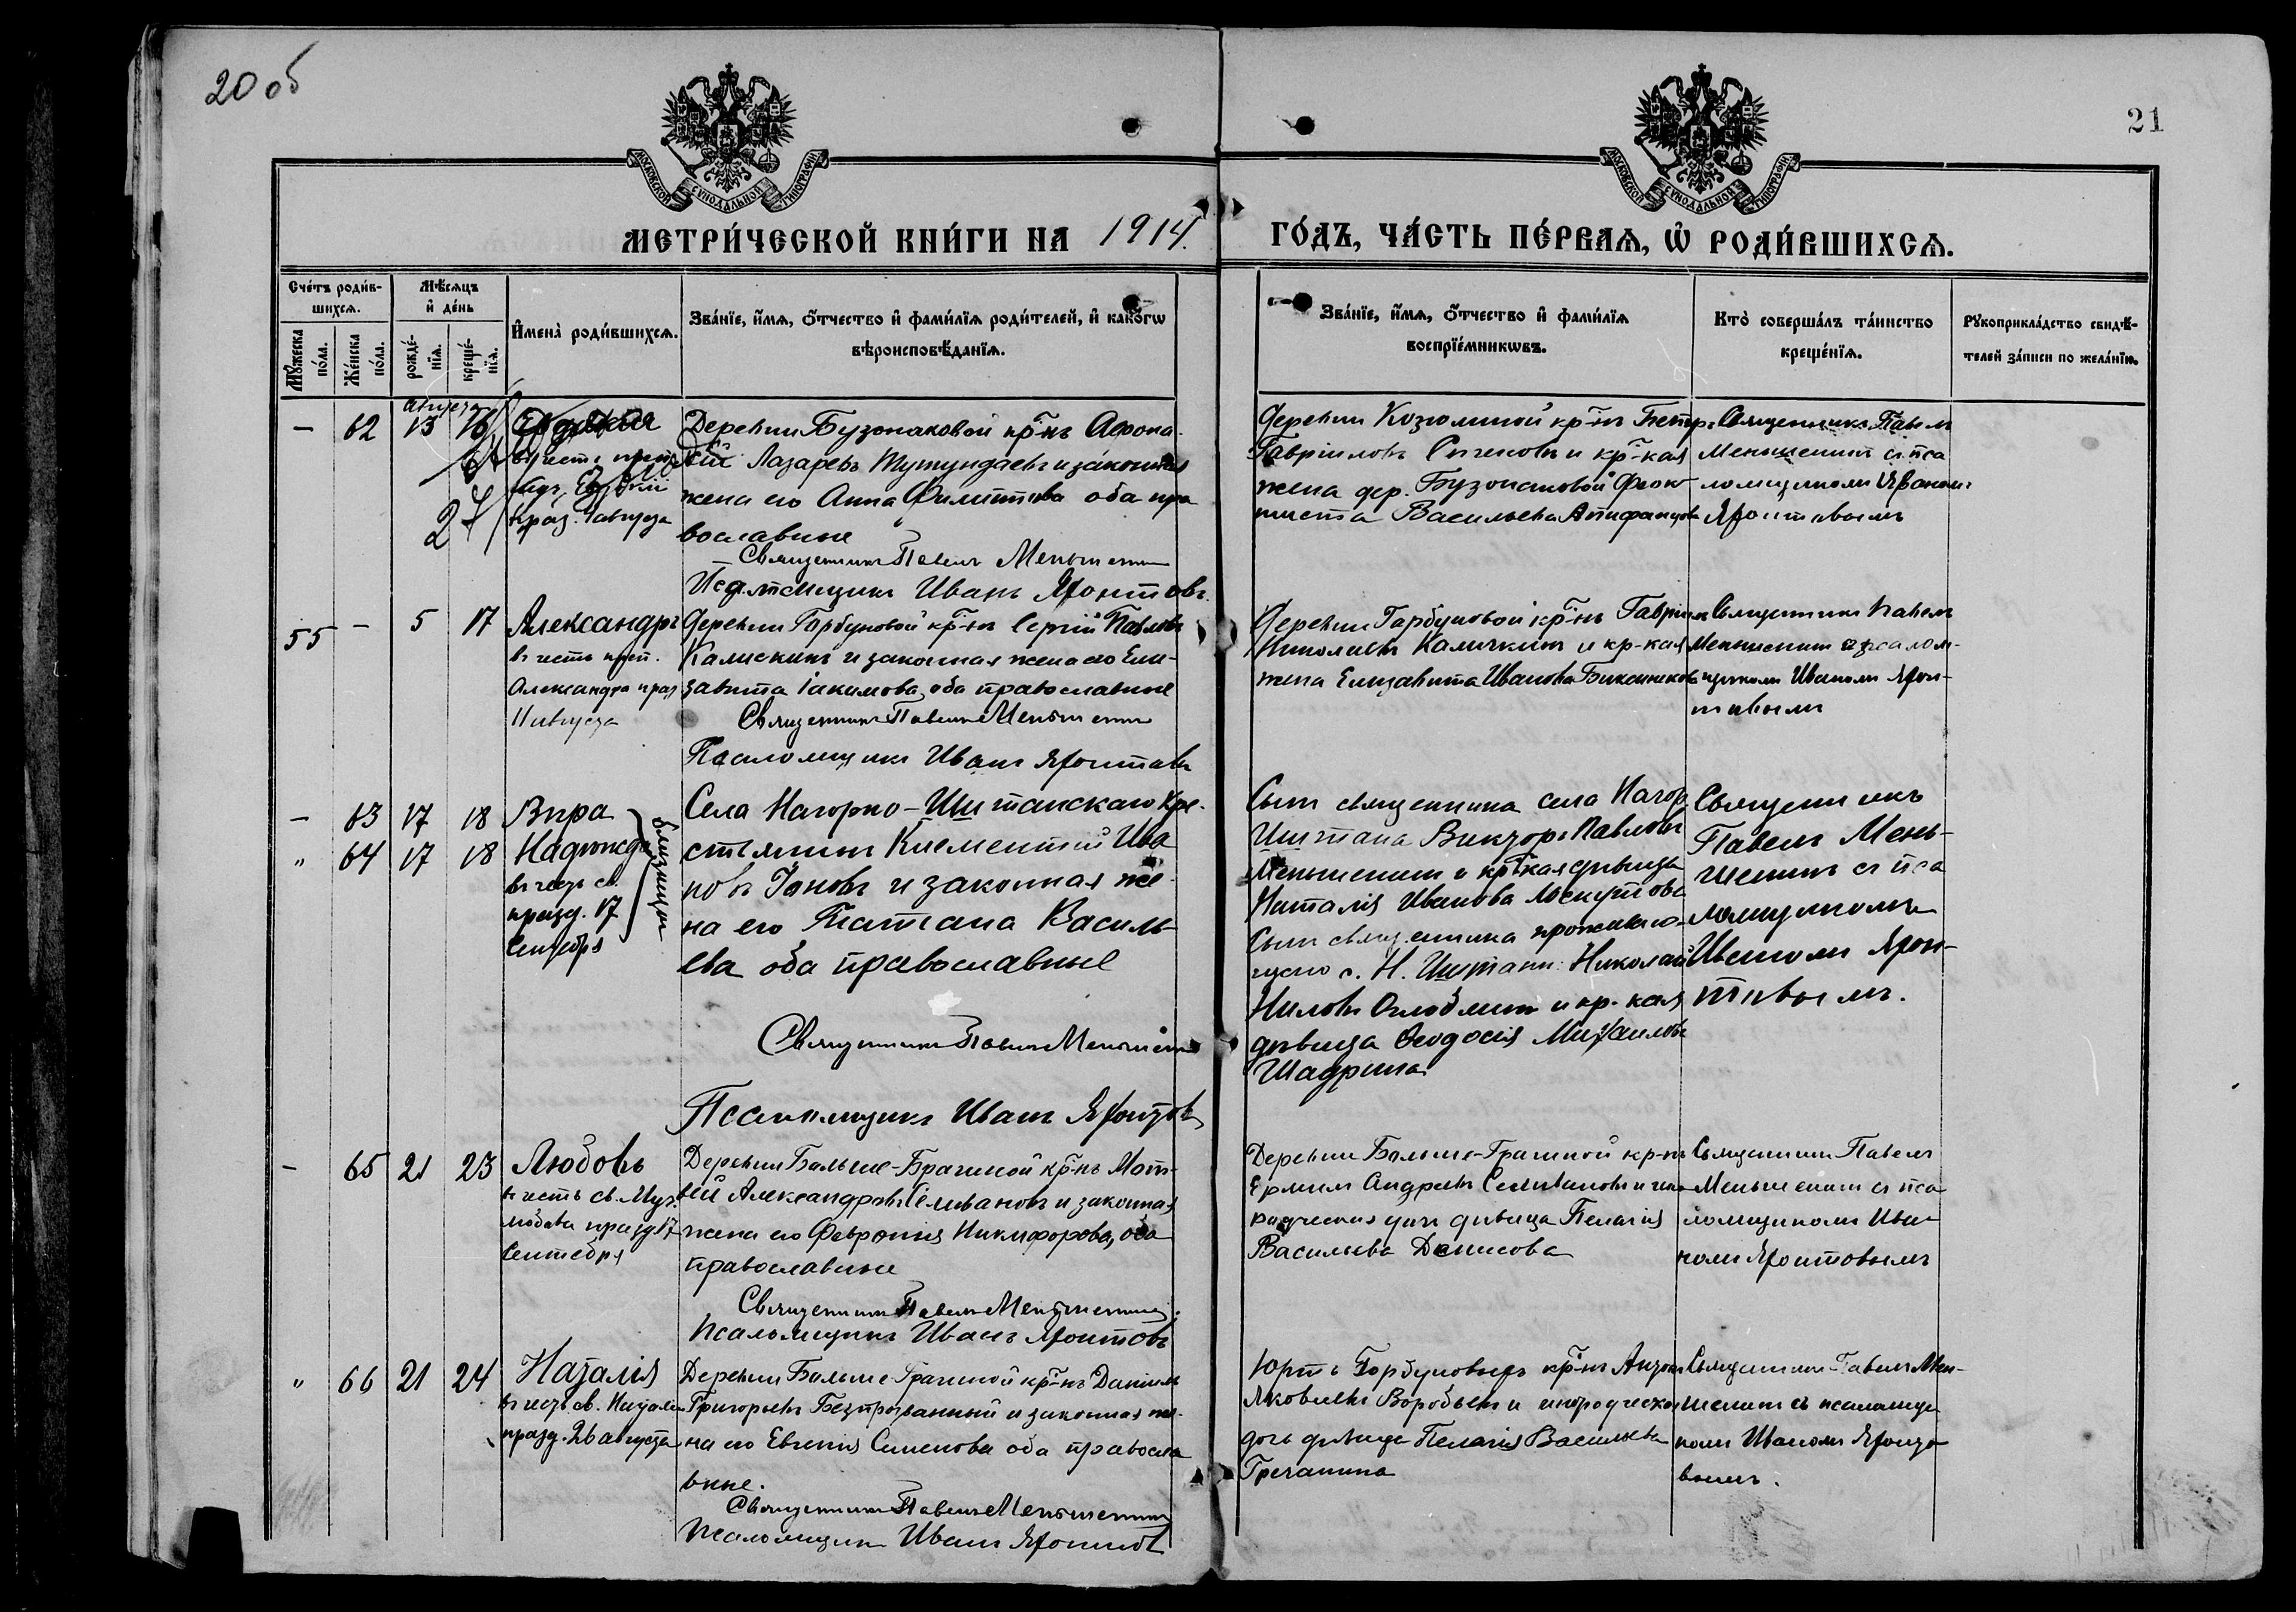 20 об
21
МОСКОВСКОЙ СѴНОДАЛЬНОЙ ТИПОГРАФІИ
МОСКОВСКОЙ СѴНОДАЛЬНОЙ ТИПОГРАФІИ
МЕТРИ́ЧЕСКОЙ КНИ́ГИ НА 1914.
ГО́ДЪ, ЧА́СТЬ ПЕ́РВАѦ, Ѡ҆ РОДИ́ВШИХСѦ.
Сче́тъ роди́в-
шихсѧ.
Мꙋ́жеска по́ла.
Же́нска по́ла.
Мѣ́сѧцъ
и҆ де́нь
рожде́-
нїѧ.
креще́-
нїѧ.
И҆мена̀ роди́вшихсѧ.
Зва́нїе, и҆́мѧ, ѻ҆́тчество и҆ фами́лїѧ роди́телей, и҆ како́гѡ
вѣроисповѣ́данїѧ.
Зва́нїе, и҆́мѧ, ѻ҆́тчество и҆ фами́лїѧ
воспрїе́мникѡвъ.
Кто̀ соверша́лъ та́инство
креще́нїѧ.
Рꙋкоприкла́дство свидѣ́-
телей за́писи по жела́нїю.
августа
— 62 13 16
27
празд. августа
Деревни Бузонаковой кр-нъ Афона-
сій Лазаревъ Тутундаевъ и законная
жена его Анна Филиппова оба пра
вославные
Священникъ Павелъ Меньшенинъ
Псаломщикъ Иванъ Яфонтовъ
Деревни Козюминой кр-нъ Петръ
Гавріиловъ и кр-кая
жена дер. Бузонаковой Феок-
тиста Васильева
Священникъ Павелъ
Меньшенинъ съ пса
ломщикомъ Иваномъ
Яфонтовымъ
55 — 5 17 Александръ
въ честь преп.
Александра праз
августа
Деревни Горбуновой кр-нъ Сергій Павловъ
и законная жена его Ели-
завета Іакимова, оба православные
Священникъ Павелъ Меньшенинъ
Псаломщикъ Иванъ Яфонтовъ
Деревни Горбуновой кр-нъ Гавріилъ
Николаевъ Каличкинъ и кр-кая
жена Елизавета Иванова
Священникъ Павелъ
Меньшенинъ съ псалом-
щикомъ Иваномъ Яфон-
товымъ
— 63 17 18 Вѣра
" 64 17 18 Надежда
Близнецы
въ честь св.
празд. 17
Сентября
Села Нагорно-Иштанскаго кре-
стьянинъ Климентій Ива
новъ Іоновъ и законная же-
на его Татіана Василь-
ева оба православные
Священникъ Павелъ Меньшенинъ
Псаломщикъ Иванъ Яфонтовъ
Сынъ священника села Нагор
Иштана Викторъ Павловъ
Меньшенинъ и кр-кая дѣвица
Наталія Иванова
Сынъ священника проживаю-
щаго с. Н. Иштана: Николай
Ниловъ и кр-кая
дѣвица Ѳеодосія Михаилова
Шадрина
Священникъ
Павелъ Мень-
шенинъ съ пса
ломщикомъ
Иваномъ Яфон-
товымъ.
— 65 21 23 Любовь
въ честь св. Муч.
Любови празд 17
Сентября
Деревни Больше-Брагиной кр-нъ Мат-
вей Александровъ Селивановъ и законная
жена его Февронія Никифорова, оба
православные
Священникъ Павелъ Меньшенинъ
Псаломщикъ Иванъ Яфонтовъ
Деревни Больше-Брагиной кр-нъ
Ермилъ Андреевъ Селивановъ и ино-
родческая дочь дѣвица Пелагія
Васильева Денисова
Священникъ Павелъ
Меньшенинъ съ пса-
ломщикомъ Ива-
номъ Яфонтовымъ
" 66 21 24 Наталія
въ честь св. Наталіи
празд. 26 августа
Деревни Больше-Брагиной кр-нъ Даніилъ
Григорьевъ Безпрозванный и законная же-
на его Евгенія Семенова оба правосла
вные.
Священникъ Павелъ Меньшенинъ
Псаломщикъ Иванъ Яфонтовъ
Юртъ Горбуновыхъ кр-нъ Антонъ
Яковлевъ Воробьевъ и инородческая
дочь дѣвица Пелагія Васильева
Гречанина
Священникъ Павелъ Мень-
шенинъ съ псаломщи
комъ Иваномъ Яфонто-
вымъ.